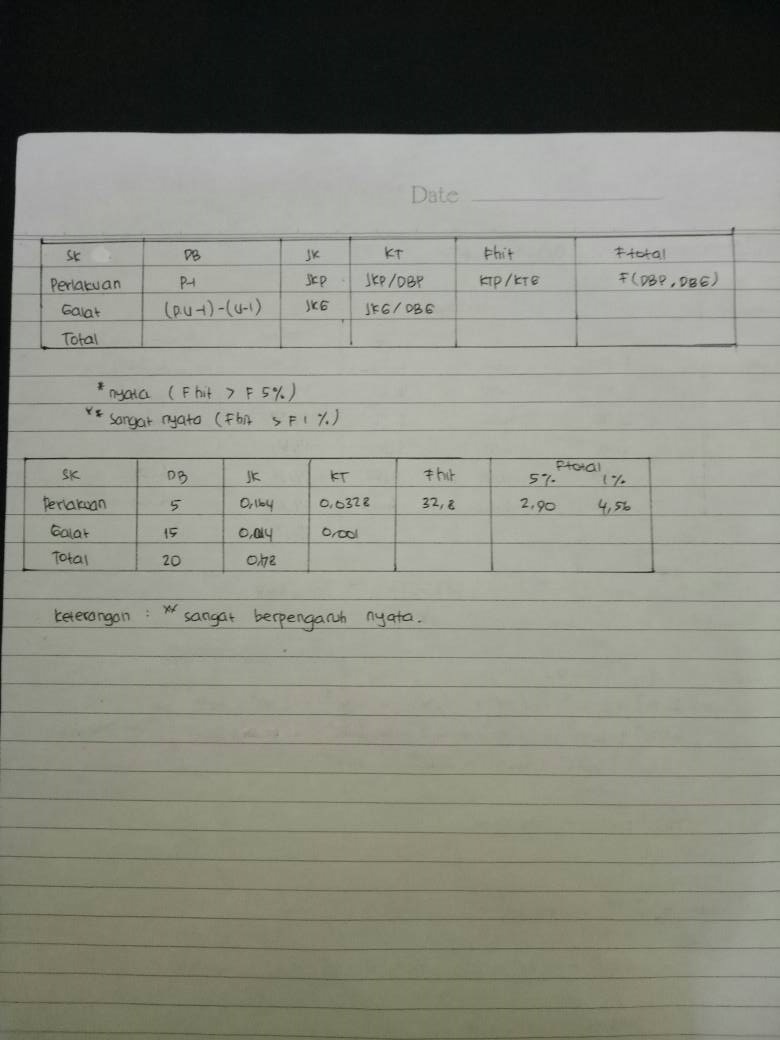 Date
SK DB JK KT Fhit Ftotal
Perlakuan P-1 JKP JKP/DBP KTP/KTG F(DBP, DBG)
Galat (P.U-1)-(U-1) JKG JKG/DBG
Total
* nyata (Fhit > F 5%)
** sangat nyata (Fhit > F 1 %)
SK DB JK KT Fhit Ftotal
5% 1%
Perlakuan 5 0,164 0,0328 32,8 2,90 4,56
Galat 15 0,014 0,001
Total 20 0,178
keterangan : ** sangat berpengaruh nyata.